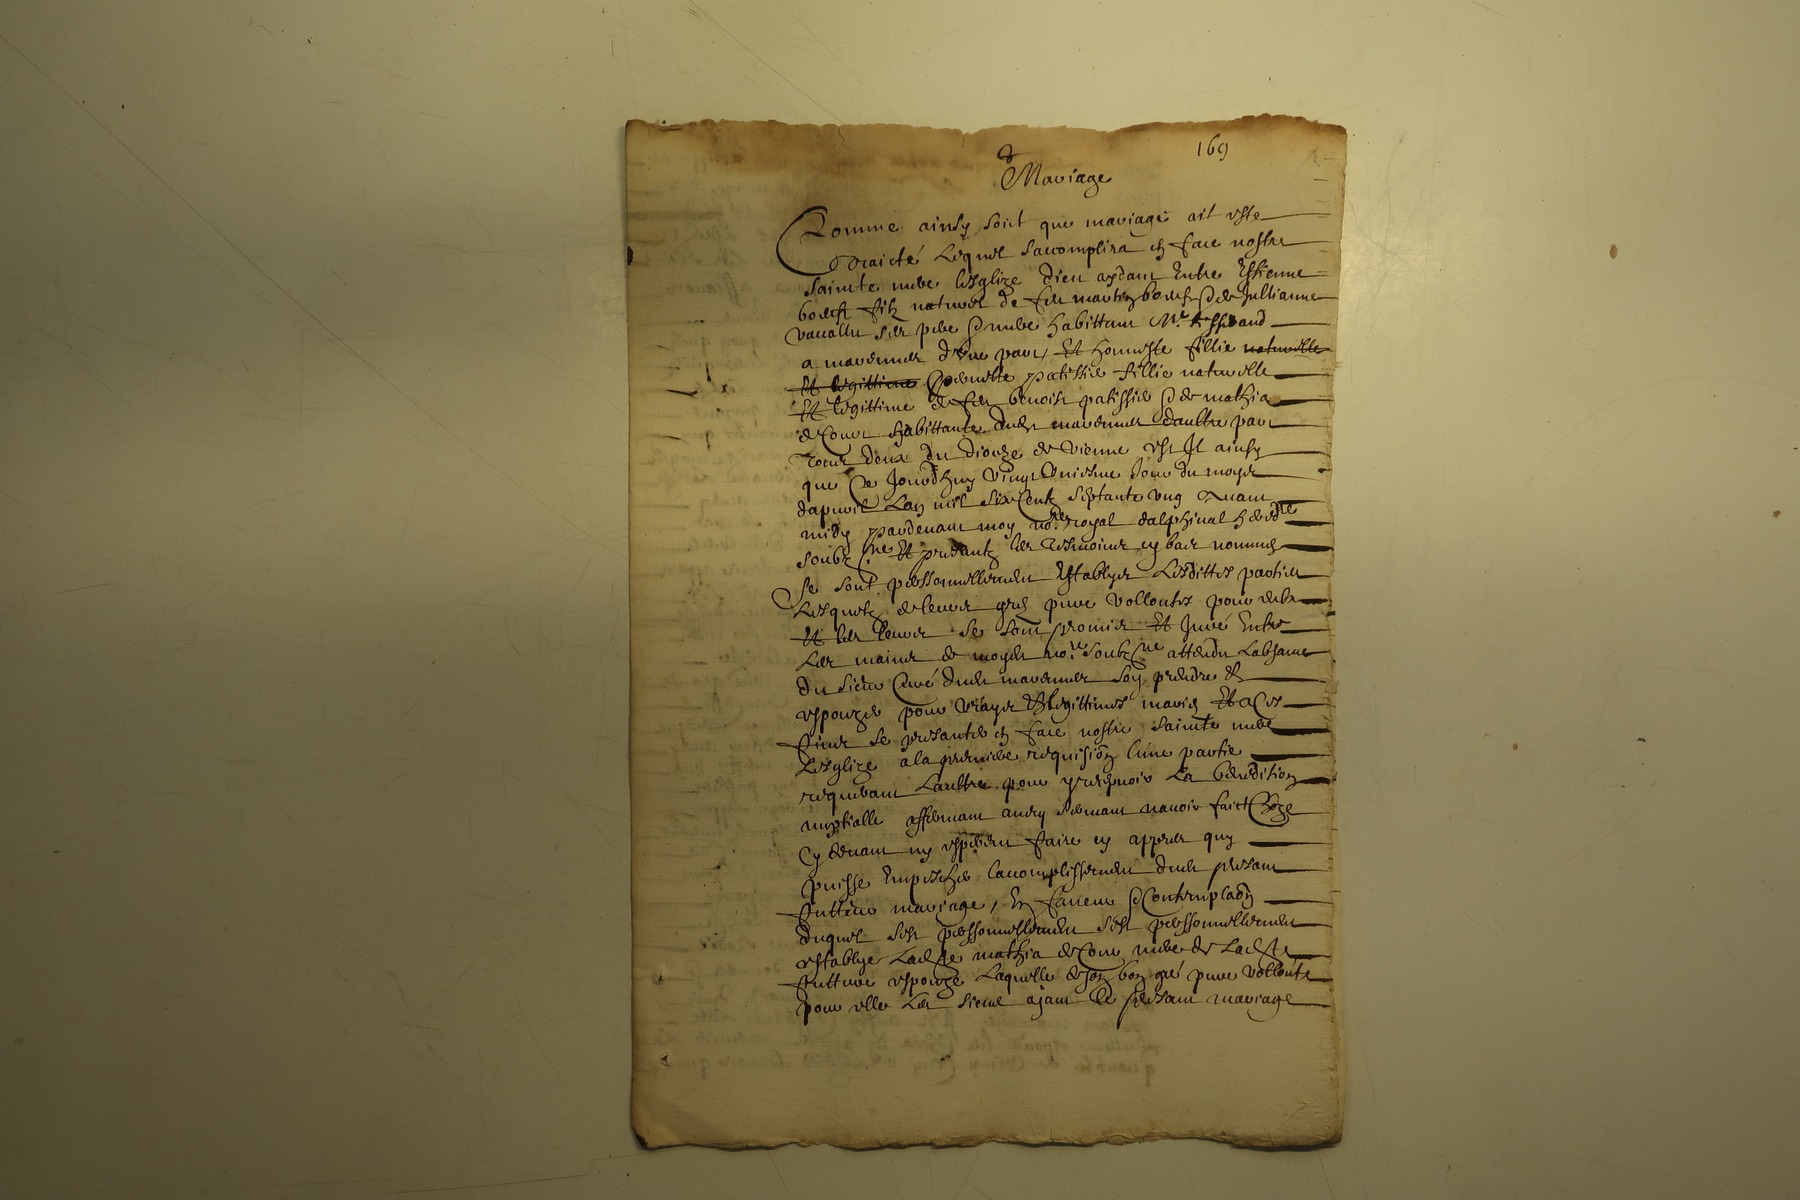 169
Mariage
Comme ainsy soict que mariage ait este
traicté Lequel saccomplira en face nostre
saincte mere lesglize dieu aydant Entre Estienne
filz naturel de feu martin & de Jullianne
ses pere & mere habittant
a d'Une part, Et honneste fillie naturelle
Et legittime patissie fillie naturelle
Et legittime de feu benoist patissie & de mathia
de Cour habittante dudit d'aultre part
Tous deux du dioceze de vienne est Il ainsy
que Ce Jourdhuy vingt Uniesme Jour du moys
dapvril Lan mil six Centz septante ung Avant
midy pardevant moy nore royal dalphinal heredre
soubzne Et presantz les tesmoins cy bas nommes
Se sont personnellement Establyes Lesdittes parties
Lesquelz de leurs gres pure Vollontes pour elles
Et les leurs se sont promis Et Juré Entre
Les mains de moydit nore soubzne attendu Labsance
du sieur Curé dudit soy prendre &
espouzer pour Vrayes & legittimes maries Et a Ces
fins se presanter en face nostre saincte mere
Lesglize a la premiere requision lune partie
requerant Laultre pour y recepvoir La benedition
nuptialle affermant navoir faict Choze
Cy devant ny esperer faire cy appres quy
puisse Empescher laccomplissement dudit presant
futtur mariage, En faveur & Contemplaon
duquel sest personnellement sest personnellement
establye Ladte mathia de Cour mere de Ladte
futture espouze Laquelle de son bon gré pure vollonte
pour elle Les siens ajant le presant mariage